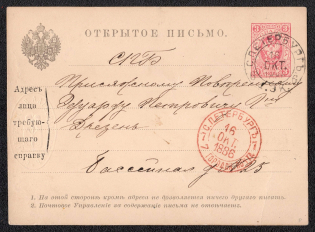 ОТКРЫТОЕ ПИСЬМО.
3
С.ПЕТЕРБУРГЪ
ОКТ.
СПБ
Присяжному Повѣренному
Эдуарду Петровичу
Адресъ
лица
требую-
щаго
справку
С.ПЕТЕРБУРГЪ
7 16 7
ОКТ.
1886
Бассейная д. 25
1. На этой сторонѣ кромѣ адреса не дозволяется ничего другаго писать.
2. Почтовое Управленіе за содержаніе письма не отвѣчаетъ.